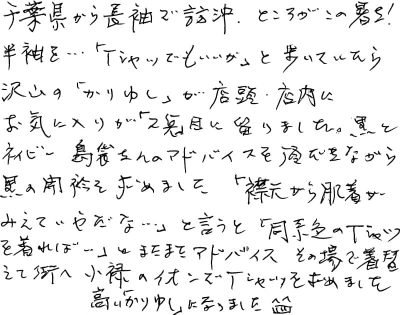 千葉県から長袖で訪沖．ところがこの暑さ!
半袖を…「Tシャツでもいいが」と歩いていたら
沢山の「かりゆし」が店頭・店内に
お気に入りが「2点目に留りました。黒と
ネイビー 島袋さんのアドバイスを頂だきながら
黒の開衿を求めました 「襟元から肌着が
みえていやだな…」と言うと「同系色のTシャツ
を着れば…」とまたまたアドバイス その場で着替
えて街へ 小禄のイオンズTシャツを求めました
高い「かりゆし」になりました